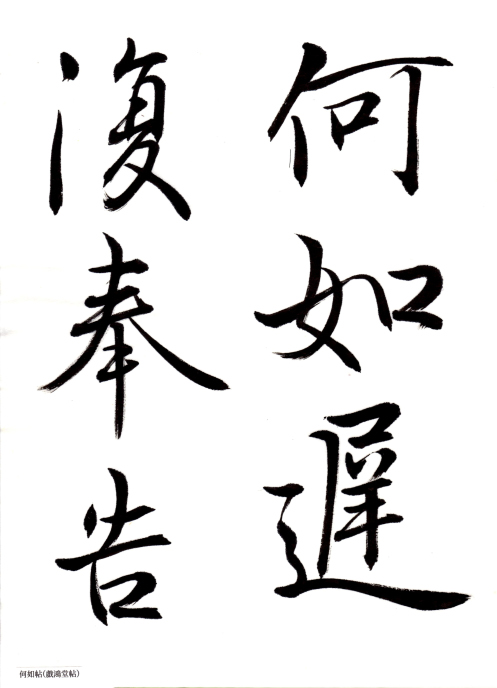 何如遲
復奉告
何如帖(戲鴻堂帖)